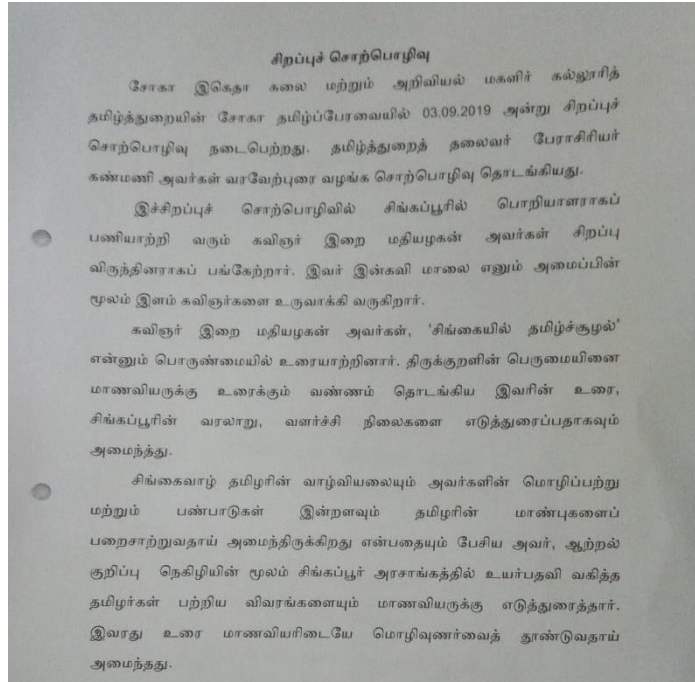 சிறப்புச் சொற்பொழிவு
சோகா இகெதா கலை மற்றும் அறிவியல் மகளிர் கல்லூரித்
தமிழ்த்துறையின் சோகா தமிழ்ப்பேரவையில் 03.09.2019 அன்று சிறப்புச்
சொற்பொழிவு நடைபெற்றது. தமிழ்த்துறைத் தலைவர் பேராசிரியர்
கண்மணி அவர்கள் வரவேற்புரை வழங்க சொற்பொழிவு தொடங்கியது.
இச்சிறப்புச் சொற்பொழிவில் சிங்கப்பூரில் பொறியாளராகப்
பணியாற்றி வரும் கவிஞர் இறை மதியழகன் அவர்கள் சிறப்பு
விருந்தினராகப் பங்கேற்றார். இவர் இன்கவி மாலை எனும் அமைப்பின்
மூலம் இளம் கவிஞர்களை உருவாக்கி வருகிறார்.
கவிஞர் இறை மதியழகன் அவர்கள், 'சிங்கையில் தமிழ்ச்சூழல்'
என்னும் பொருண்மையில் உரையாற்றினார். திருக்குறளின் பெருமையினை
மாணவியருக்கு உரைக்கும் வண்ணம் தொடங்கிய இவரின் உரை,
சிங்கப்பூரின் வரலாறு, வளர்ச்சி நிலைகளை எடுத்துரைப்பதாகவும்
அமைந்த்து.
சிங்கைவாழ் தமிழரின் வாழ்வியலையும் அவர்களின் மொழிப்பற்று
மற்றும் பண்பாடுகள் இன்றளவும் தமிழரின் மாண்புகளைப்
பறைசாற்றுவதாய் அமைந்திருக்கிறது என்பதையும் பேசிய அவர், ஆற்றல்
குறிப்பு நெகிழியின் மூலம் சிங்கப்பூர் அரசாங்கத்தில் உயர்பதவி வகித்த
தமிழர்கள் பற்றிய விவரங்களையும் மாணவியருக்கு எடுத்துரைத்தார்.
இவரது உரை மாணவியரிடையே மொழிவுணர்வைத் தூண்டுவதாய்
அமைந்தது.